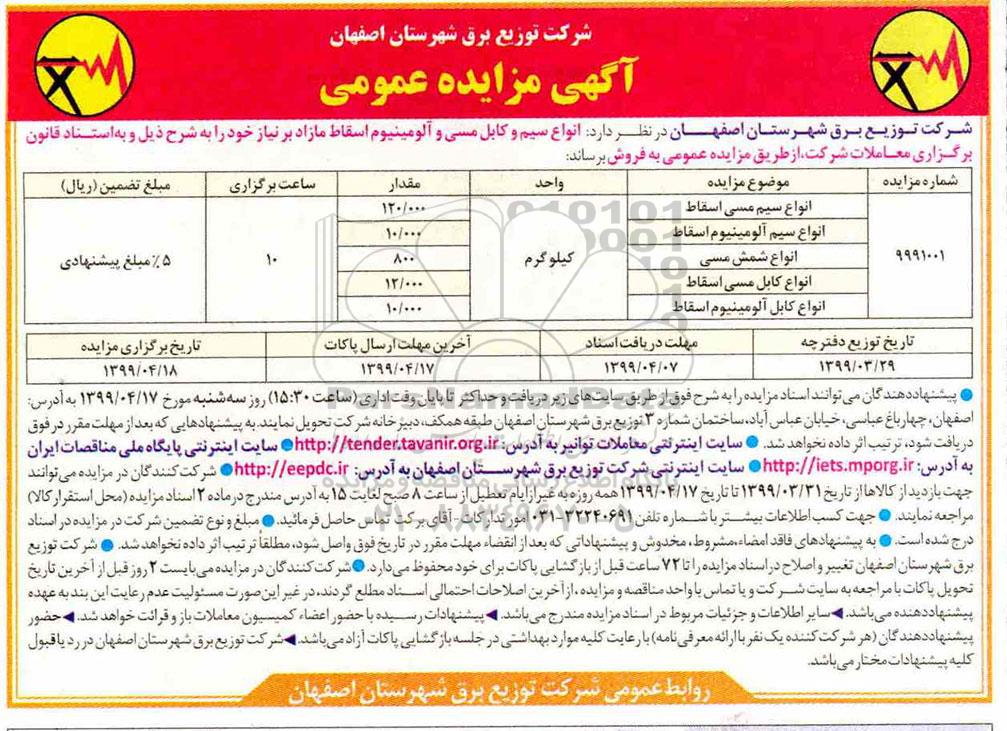 شرکت توزیع برق شهرستان اصفهان
آگهی مزایده عمومی
شرکت توزیع برق شهرستان اصفهان در نظر دارد: انواع سیم و کابل مسی و آلومینیوم اسقاط مازاد بر نیاز خود را به شرح ذیل و به استناد قانون
برگزاری معاملات شرکت، از طریق مزایده عمومی به فروش برساند:
شماره مزایده موضوع مزایده واحد مقدار ساعت برگزاری مبلغ تضمین (ریال)
انواع سیم مسی اسقاط ۱۲۰/۰۰۰
انواع سیم آلومینیوم اسقاط ۱۰/۰۰۰
۹۹۹۱۰۰۱ انواع شمش مسی کیلوگرم ۸۰۰ ۱۰ ۵٪ مبلغ پیشنهادی
انواع کابل مسی اسقاط ۱۲/۰۰۰
انواع کابل آلومینیوم اسقاط ۱۰/۰۰۰
تاریخ توزیع دفترچه مهلت دریافت اسناد آخرین مهلت ارسال پاکات تاریخ برگزاری مزایده
۱۳۹۹/۰۳/۲۹ ۱۳۹۹/۰۴/۰۷ ۱۳۹۹/۰۴/۱۷ ۱۳۹۹/۰۴/۱۸
پیشنهاددهندگان می توانند اسناد مزایده را به شرح فوق از طریق سایت های زیر دریافت و حداکثر تا پایان وقت اداری (ساعت ۱۵:۳۰) روز سه شنبه مورخ ۱۳۹۹/۰۴/۱۷ به آدرس:
اصفهان، چهارباغ عباسی، خیابان عباس آباد، ساختمان شماره ۳ توزیع برق شهرستان اصفهان طبقه همکف، دبیرخانه شرکت تحویل نمایند. به پیشنهادهایی که بعد از مهلت مقرر در فوق
دریافت شود، ترتیب اثر داده نخواهد شد. سایت اینترنتی معاملات توانیر به آدرس: http://tender.tavanir.org.ir سایت اینترنتی پایگاه ملی مناقصات ایران
به آدرس: http://iets.mporg.ir سایت اینترنتی شرکت توزیع برق شهرستان اصفهان به آدرس: http://eepdc.ir شرکت کنندگان در مزایده می توانند
جهت بازدید از کالاها از تاریخ ۱۳۹۹/۰۳/۳۱ تا تاریخ ۱۳۹۹/۰۴/۱۷ همه روزه به غیر از ایام تعطیل از ساعت ۸ صبح لغایت ۱۵ به آدرس مندرج در ماده ۲ اسناد مزایده (محل استقرار کالا)
مراجعه نمایند. جهت کسب اطلاعات بیشتر با شماره تلفن ۳۲۲۴۰۶۹۱-۰۳۱ امور تدارکات، آقای برکت تماس حاصل فرمائید. مبلغ و نوع تضمین شرکت در مزایده در اسناد
درج شده است. به پیشنهادهای فاقد امضاء، مشروط، مخدوش و پیشنهاداتی که بعد از انقضاء مهلت مقرر در تاریخ فوق واصل شود، مطلقاً ترتیب اثر داده نخواهد شد. شرکت توزیع
برق شهرستان اصفهان تغییر و اصلاح در اسناد مزایده را تا ۷۲ ساعت قبل از بازگشایی پاکات برای خود محفوظ می دارد. شرکت کنندگان در مزایده می بایست ۲ روز قبل از آخرین تاریخ
تحویل پاکات با مراجعه به سایت شرکت و یا تماس با واحد مناقصه و مزایده، از آخرین اصلاحات احتمالی اسناد مطلع گردند، در غیر این صورت مسئولیت عدم رعایت این بند به عهده
پیشنهاددهنده می باشد. سایر اطلاعات و جزئیات مربوط در اسناد مزایده مندرج می باشد. پیشنهادات رسیده با حضور اعضاء کمیسیون معاملات باز و قرائت خواهد شد. حضور
پیشنهاددهندگان (هر شرکت کننده یک نفر با ارائه معرفی نامه) با رعایت کلیه موارد بهداشتی در جلسه بازگشایی پاکات آزاد می باشد. شرکت توزیع برق شهرستان اصفهان در رد یا قبول
کلیه پیشنهادات مختار می باشد.
روابط عمومی شرکت توزیع برق شهرستان اصفهان